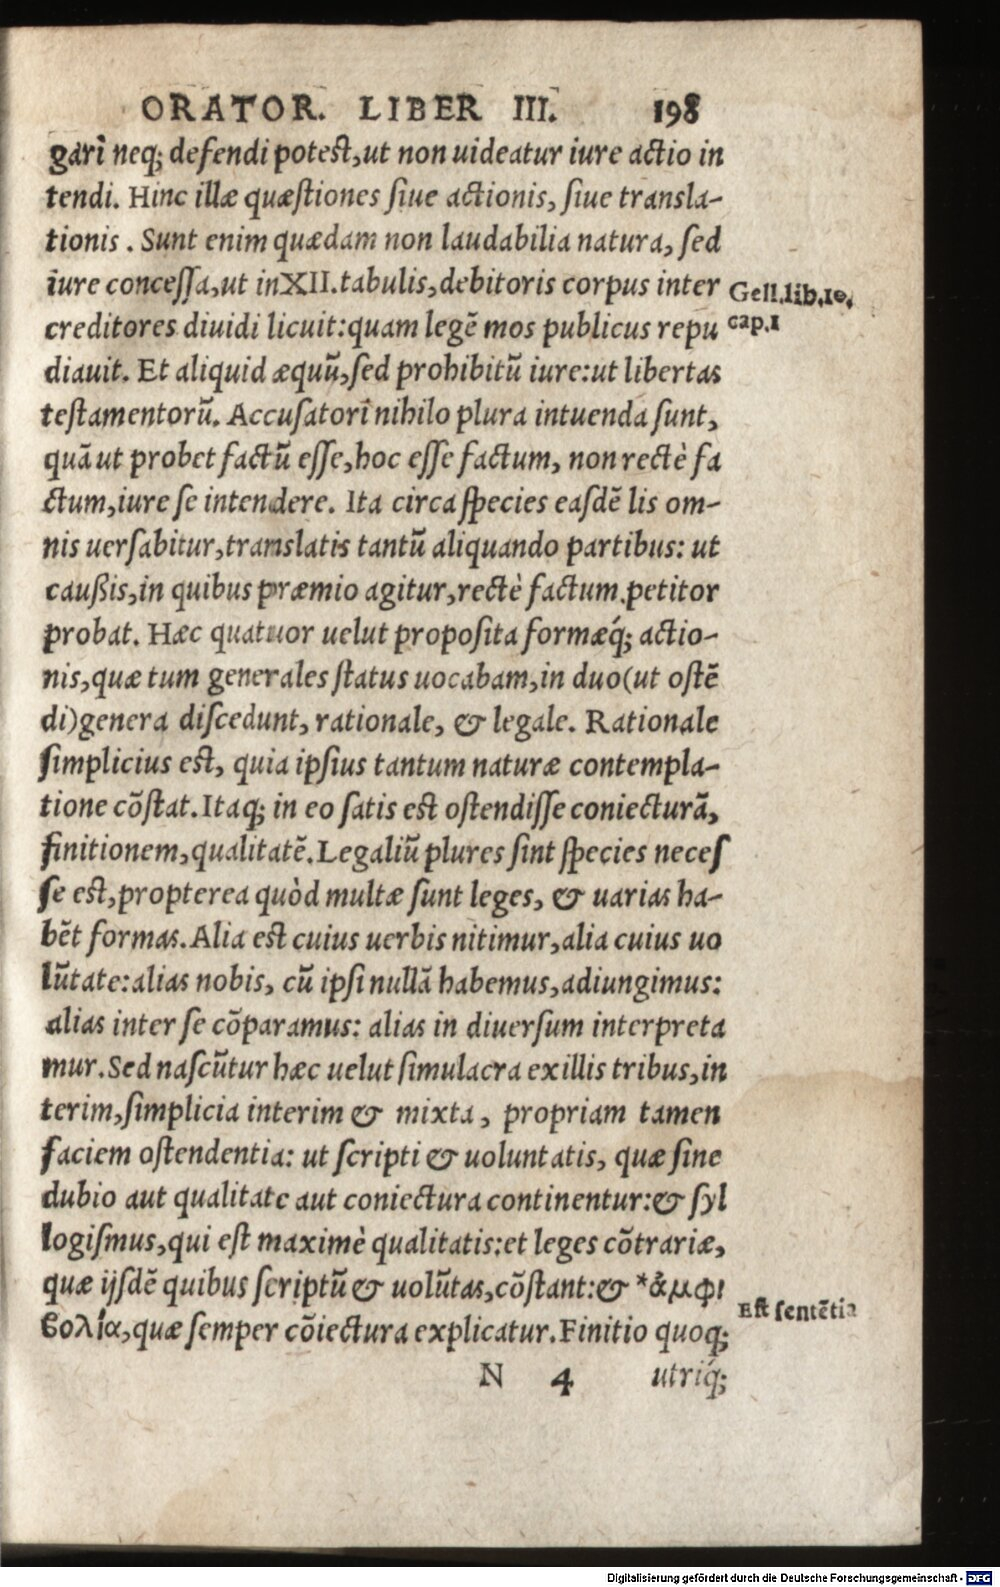 ORATOR. LIBER III. 198
gari neq; defendi potest, ut non uideatur iure actio in
tendi. Hinc illæ quæstiones siue actionis, siue transla-
tionis. Sunt enim quædam non laudabilia natura, sed
iure concessa, ut in XII. tabulis, debitoris corpus inter
Gell. lib. 20.
creditores diuidi licuit: quam legẽ mos publicus repu
cap. 1
diauit. Et aliquid æquũ, sed prohibitũ iure: ut libertas
testamentorũ. Accusatori nihilo plura intuenda sunt,
quã ut probet factũ esse, hoc esse factum, non rectè fa
ctum, iure se intendere. Ita circa species easdẽ lis om-
nis uersabitur, translatis tantũ aliquando partibus: ut
caußis, in quibus præmio agitur, rectè factum petitor
probat. Hæc quatuor uelut proposita formæq́; actio-
nis, quæ tum generales status uocabam, in duo (ut ostẽ
di) genera discedunt, rationale, & legale. Rationale
simplicius est, quia ipsius tantum naturæ contempla-
tione cõstat. Itaq; in eo satis est ostendisse coniecturã,
finitionem, qualitatẽ. Legaliũ plures sint species neces
se est, propterea quòd multæ sunt leges, & uarias ha-
bẽt formas. Alia est cuius uerbis nitimur, alia cuius uo
lũtate: alias nobis, cũ ipsi nullã habemus, adiungimus:
alias inter se cõparamus: alias in diuersum interpreta
mur. Sed nascũtur hæc uelut simulacra ex illis tribus, in
terim, simplicia interim & mixta, propriam tamen
faciem ostendentia: ut scripti & uoluntatis, quæ sine
dubio aut qualitate aut coniectura continentur: & syl
logismus, qui est maximè qualitatis: et leges cõtrariæ,
quæ ijsdẽ quibus scriptũ & uolũtas, cõstant: & *ἀμφι
Est sentẽtia
βολία, quæ semper cõiectura explicatur. Finitio quoq;
N 4 utriq́;
Digitalisierung gefördert durch die Deutsche Forschungsgemeinschaft - DFG